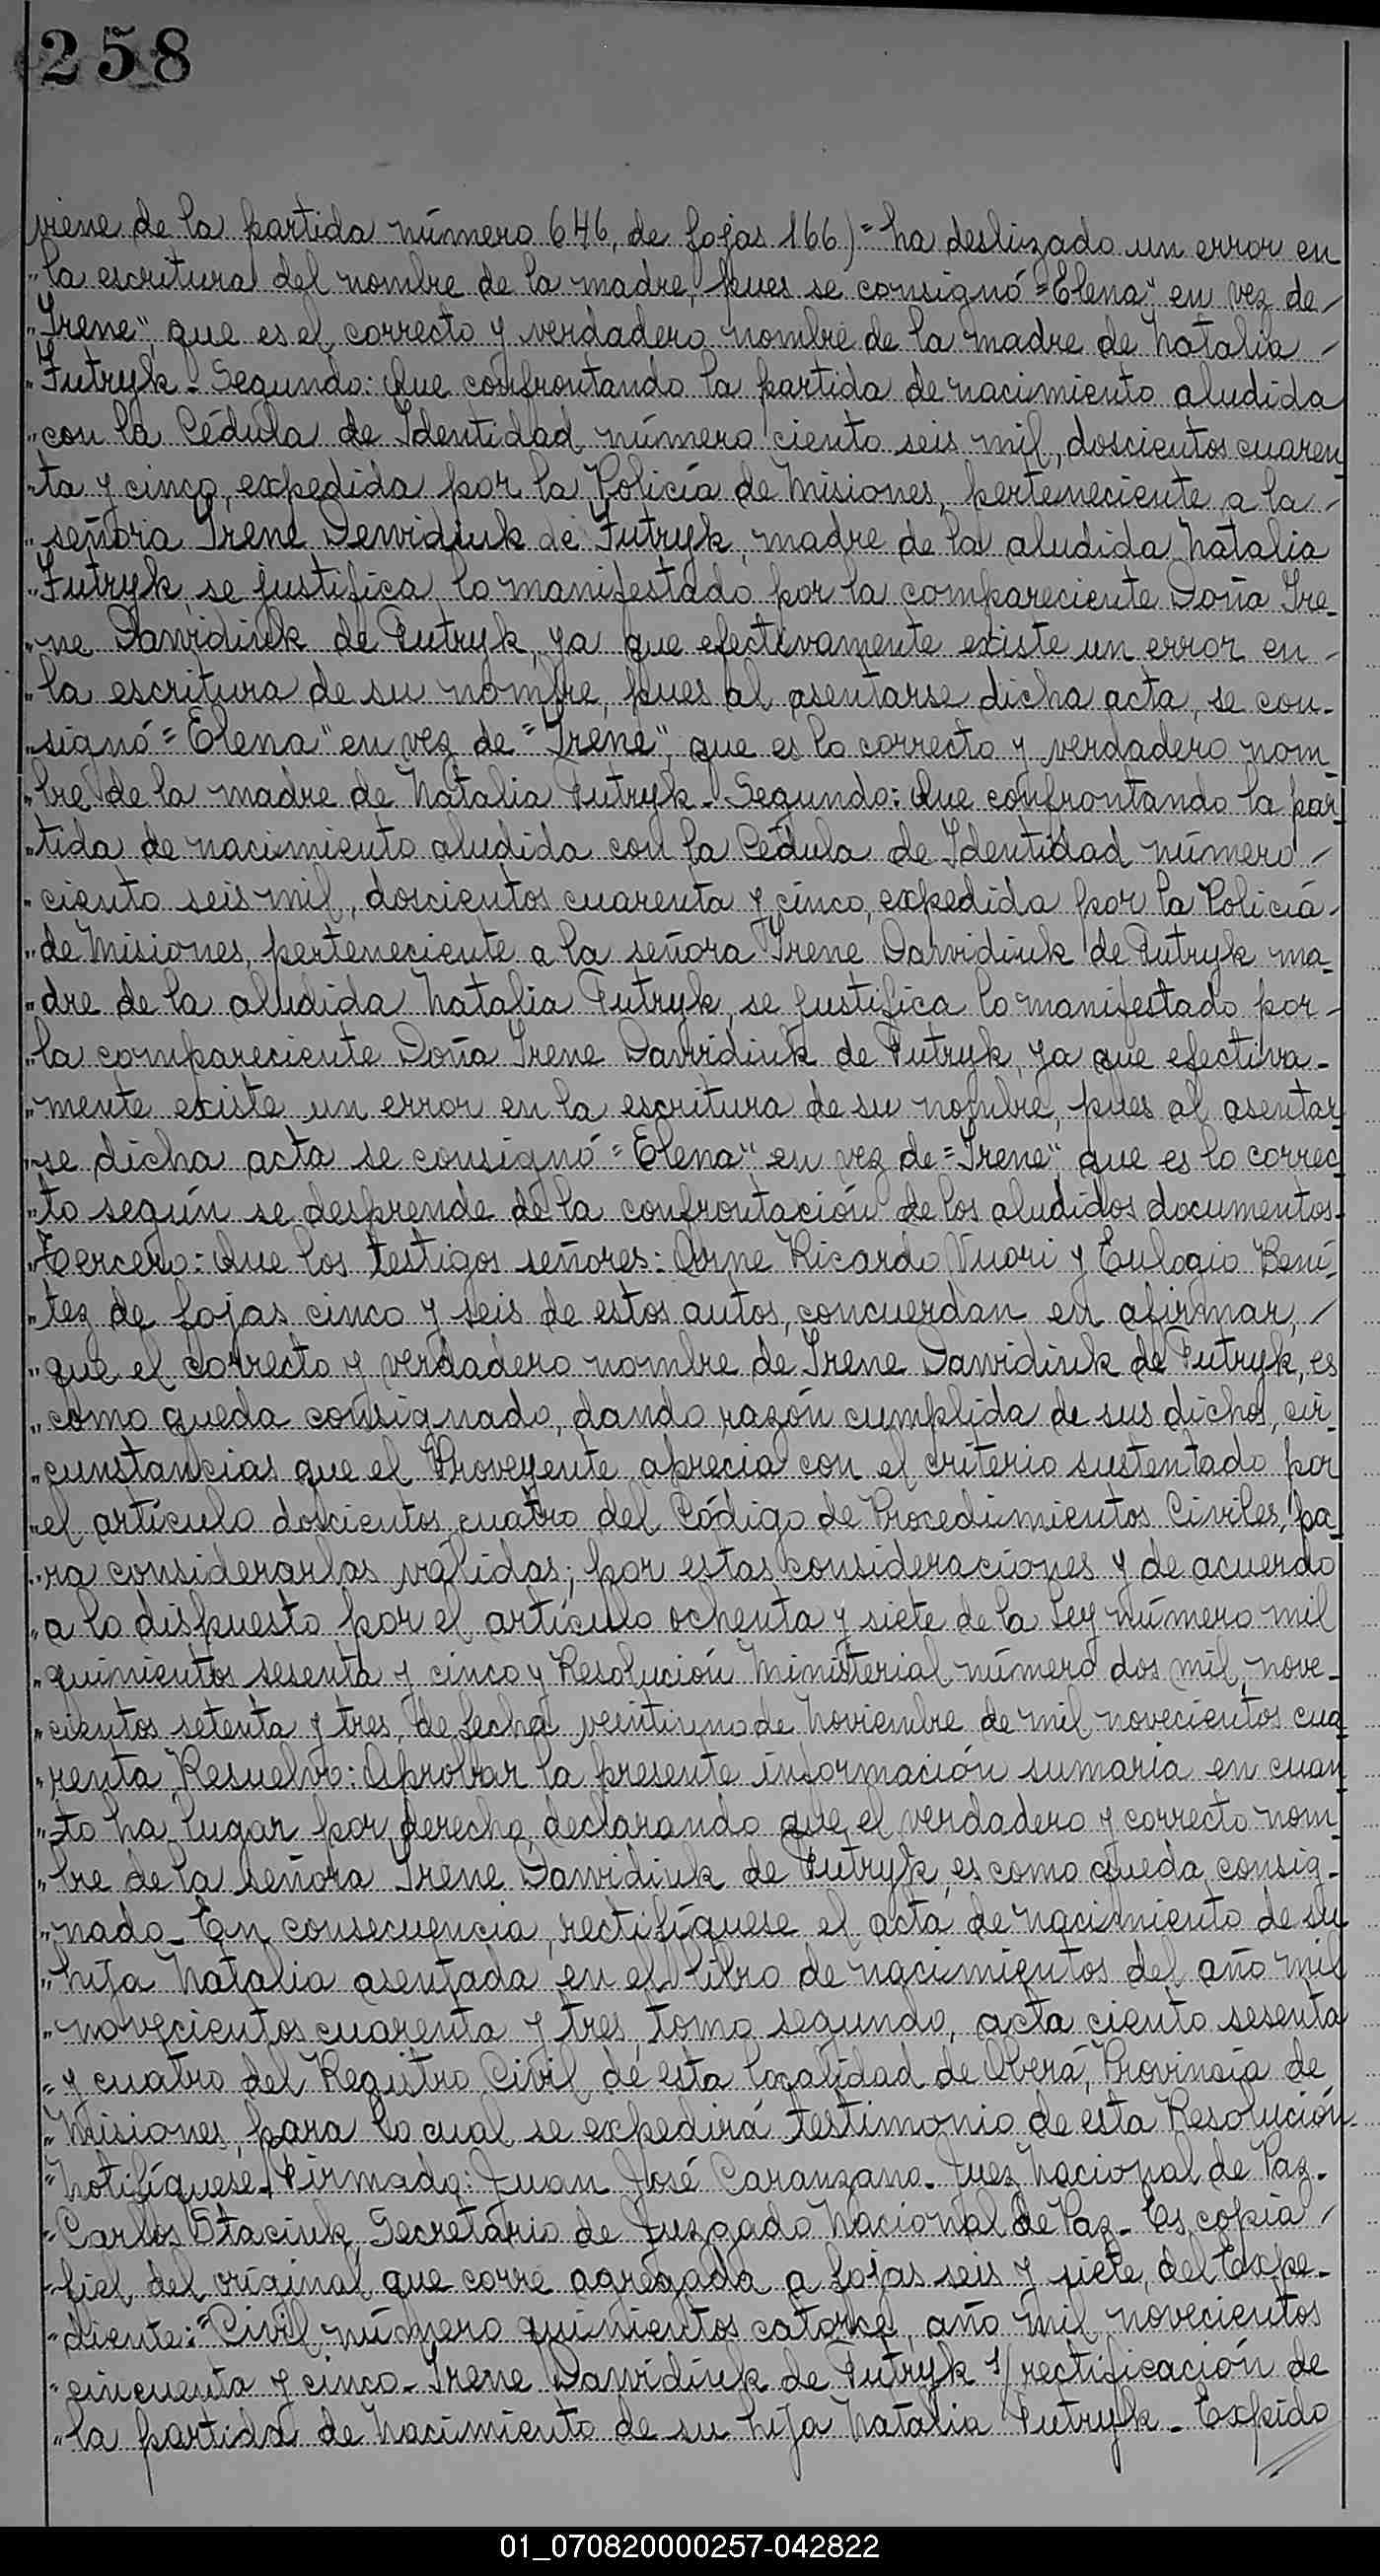 258
viene de la partida número 646, de fojas 166)=ha deslizado un error en
"la escritura del nombre de la madre, pues se consignó="Elena" en vez de/
"Irene", que es el correcto y verdadero nombre de la madre de Natalia /
"Futryk- Segundo: Que confrontando la partida de nacimiento aludida
"con la Cédula de Identidad número ciento seis mil, doscientos cuaren
"ta y cinco, expedida por la Policía de Misiones, perteneciente a la /
"señora Irene Dewidiuk de Futryk, madre de la aludida Natalia
"Futryk, se justifica lo manifestado por la compareciente Doña Ire-
"ne Dawidiuk de Futryk, ya que efectivamente existe un error en -
"la escritura de su nombre, pues al asentarse dicha acta, se con-
"signó="Elena" en vez de="Irene", que es lo correcto y verdadero nom
"bre de la madre de Natalia Futryk.- Segundo: Que confrontando la par
"tida de nacimiento aludida con la Cédula de Identidad número /
"ciento seis mil, doscientos cuarenta y cinco, expedida por la Policia -
"de Misiones, perteneciente a la señora Irene Dawidiuk de Futryk ma-
"dre de la aludida Natalia Futryk, se justifica lo manifestado por -
"la compareciente Doña Irene Dawidiuk de Futryk, ya que efectiva-
"mente existe un error en la escritura de su nombre, pues al asentar
"se dicha acta se consignó="Elena" en vez de="Irene", que es lo correc
"to según se desprende de la confrontación de los aludidos documentos-
"Tercero: Que los testigos señores: Arne Ricardo Vuori y Eulogio Bení-
"tez de fojas cinco y seis de estos autos, concuerdan en afirmar, /
"que el correcto y verdadero nombre de Irene Dawidiuk de Futryk, es
"como queda consignado, dando razón cumplida de sus dichos, cir
"cunstancias que el Proveyente aprecia con el criterio sustentado por
"el artículo doscientos cuatro del Código de Procedimientos Civiles, pa
"ra considerarlas válidas; por estas consideraciones y de acuerdo
"a lo dispuesto por el artículo ochenta y siete de la Ley número mil
"quinientos sesenta y cinco y Resolución Ministerial número dos mil, nove-
"cientos setenta y tres, de fecha veintiuno de Noviembre de mil novecientos cua
"renta, Resuelvo: Aprobar la presente información sumaria en cuan
"to ha lugar por derecho declarando que el verdadero y correcto nom
"bre de la señora Irene Dawidiuk de Futryk, es como queda consig-
"nado- En consecuencia, rectifíquese el acta de nacimiento de su
"hija Natalia asentada en el libro de nacimientos del año mil
"novecientos cuarenta y tres, tomo segundo, acta ciento sesenta
"y cuatro del Registro Civil de esta localidad de Oberá, Provincia de
"Misiones, para lo cual se expedirá testimonio de esta Resolución-
"Notifíquese- Firmado: Juan José Caranzano- Juez Nacional de Paz-
"Carlos Staciuk, Secretario de Juzgado Nacional de Paz- Es copia /
"fiel del original que corre agregada a fojas seis y siete, del Expe-
"diente:"Civil número quinientos catorce, año mil novecientos
"cincuenta y cinco- Irene Dawidiuk de Futryk s/ rectificación de
"la partida de Nacimiento de su hija Natalia Futryk- Expido
01_070820000257-042822